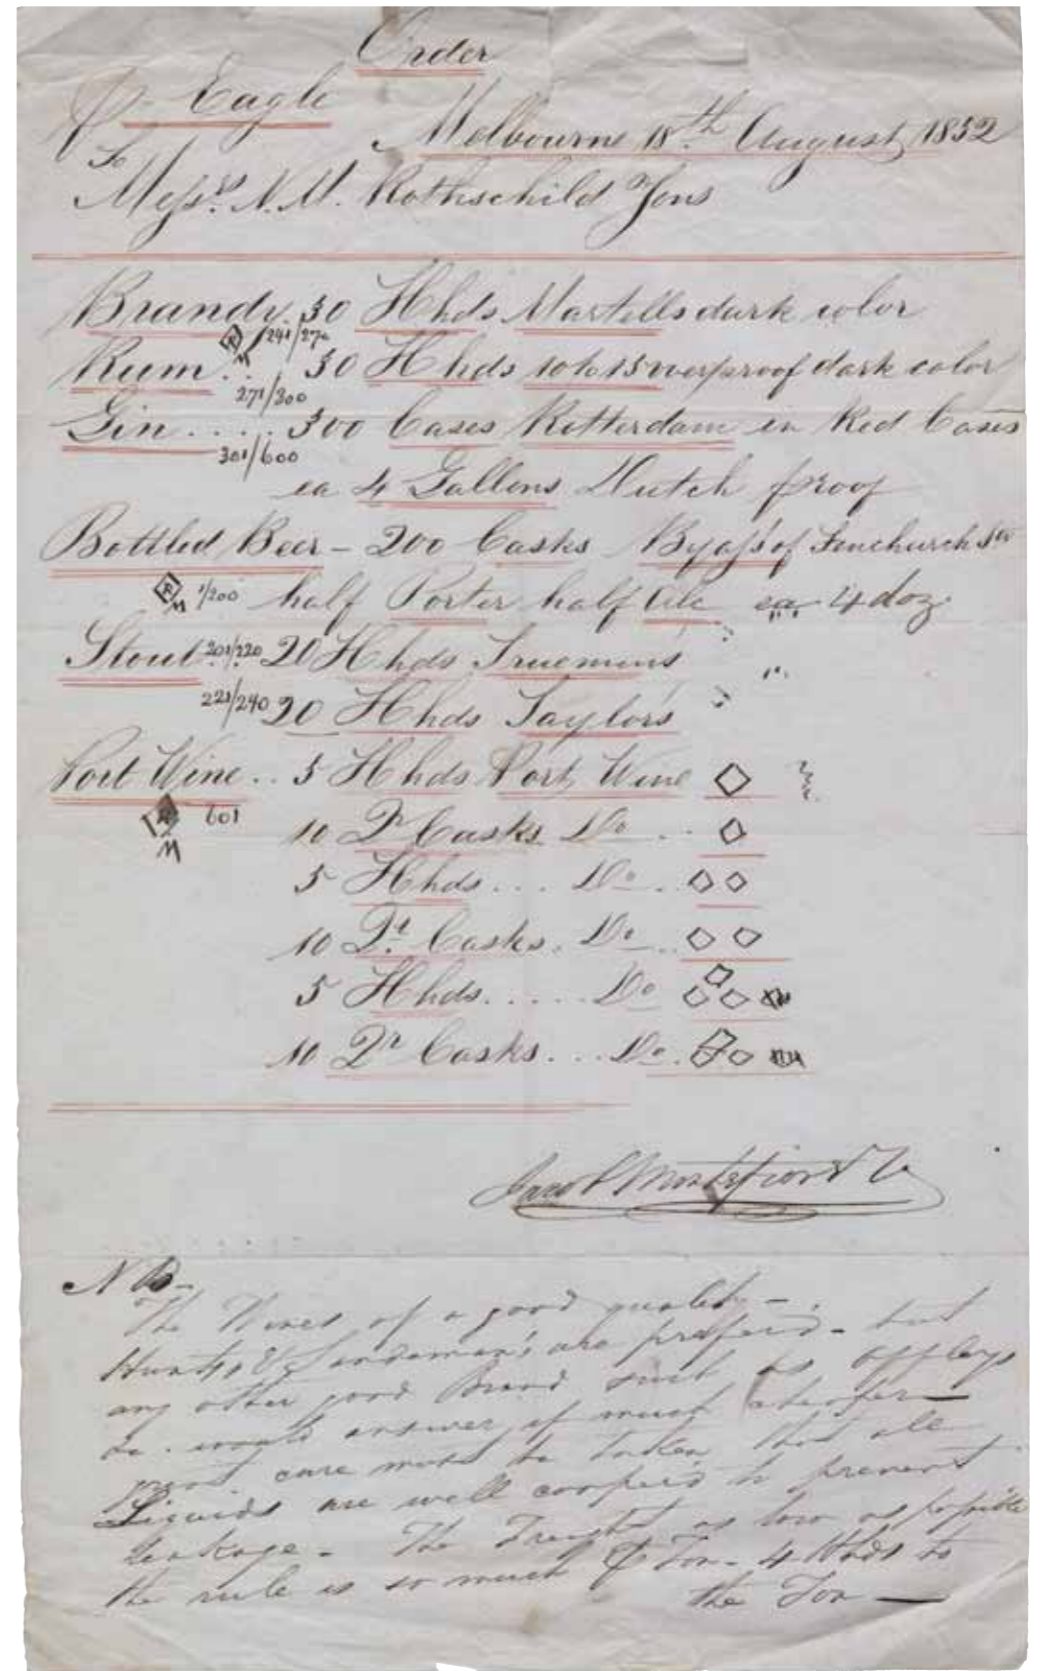 Order
℘ Eagle
Melbourne 18th August, 1852
To
Messrs. N. M. Rothschild & Sons
Brandy. 30 Hhds Martells dark color
R M 241/270
Rum.. 30 Hhds 10 to 15 overproof dark color
271/300
Gin..... 300 Cases Rotterdam in Red Cases
301/600
ea 4 Gallons Dutch proof
Bottled Beer - 200 Casks Byass of Fenchurch St
R M 1/200 half Porter half Ale ea 4 doz.
Stout 201/220 20 Hhds Truemans "
221/240 20 Hhds Taylors "
Port Wine.. 5 Hhds Port Wine ◇
R M 601
10 Qr Casks Do .. ◇
5 Hhds... Do . ◇◇
10 Qr Casks. Do .. ◇◇
5 Hhds..... Do ◇◇◇
10 Qr Casks... Do. ◇◇◇
Jacob Montefiore & Co
NB-
The Wines of a good quality -.
Hunts & Sandeman's are prefered - but
any other good Brand such as Offleys
&c. would answer if much cheaper —
great care must be taken that all
Liquids are well coopered to prevent
leakage - The Freight as low as possible
the rule is so much ℘ Ton - 4 Hhds to
the Ton —